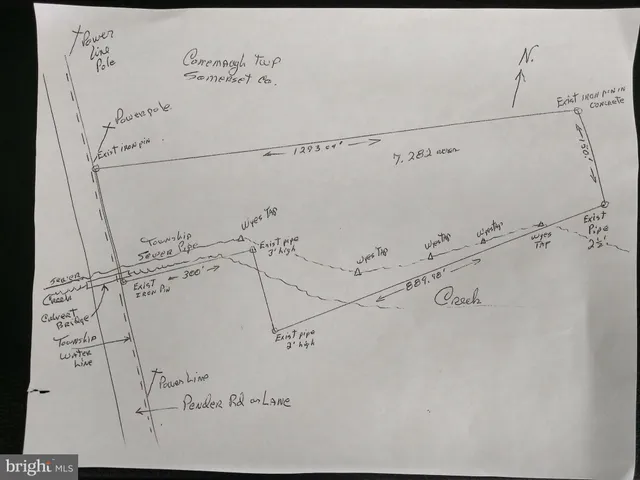 Power
Line
Pole
Conemaugh Twp
Somerset Co.
N.
Powerpole
Exist iron pin in
concrete
Exist iron pin
1293.04'
7.282 acres
150'
Wyes Tap
Township
Sewer Pipe
Exist pipe
3' high
Wyes Tap
Wyes Tap
Wyes Tap
Wyes
Tap
Exist
Pipe
2½'
Sewer
Creek
Exist
Iron Pin
300'
889.98'
Creek
Culvert
Bridge
Township
Water
Line
Exist pipe
2' high
Power Line
Pender Rd or Lane
bright MLS